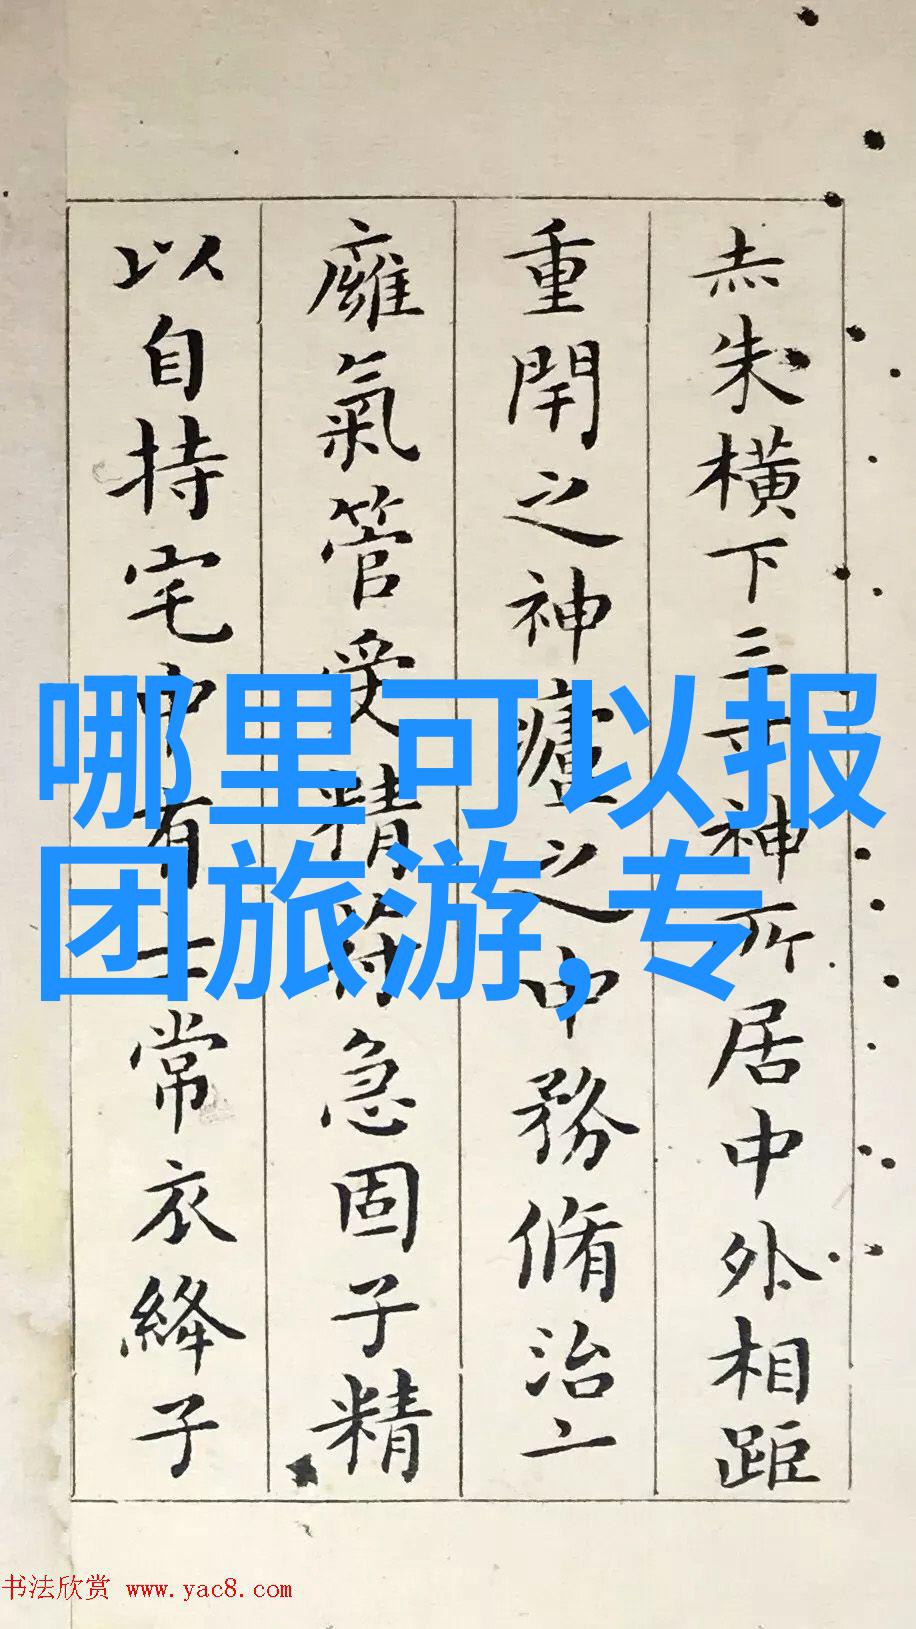 赤朱横下三寸神所居中外相距
重閇之神廬之中務脩治
廱氣管受精苻急固子精
以自持宅中有士常衣絳子
哪里可以报
团旅游,专
书法欣赏 www.yac8.com